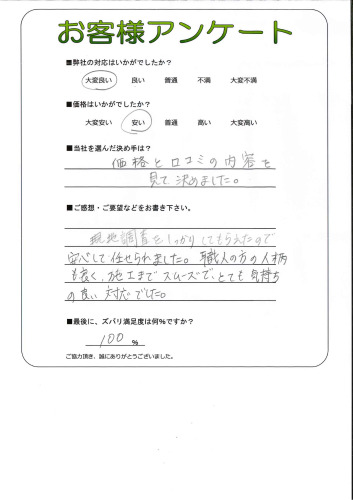 お客様アンケート
■弊社の対応はいかがでしたか？
大変良い 良い 普通 不満 大変不満
■価格はいかがでしたか？
大変安い 安い 普通 高い 大変高い
■当社を選んだ決め手は？
価格と口コミの内容を
見て決めました。
■ご感想・ご要望などをお書き下さい。
現地調査をしっかりしてもらえたので
安心して任せられました。職人の方の人柄
も良く、施工までスムーズで、とても気持ち
の良い対応でした。
■最後に、ズバリ満足度は何%ですか？
100 %
ご協力頂き、誠にありがとうございました。